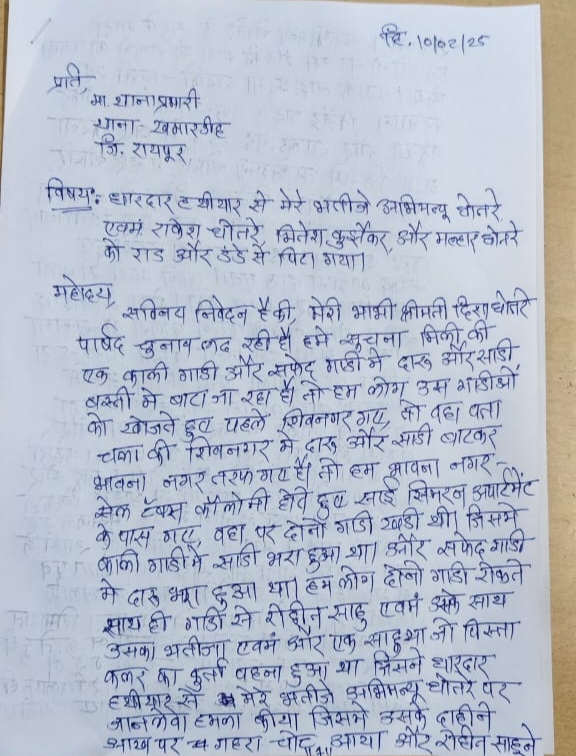 दि. 10/02/25
प्रति,
मा. थाना प्रभारी
थाना खमारडीह
जि. रायपुर
विषय: धारदार हथीयार से मेरे भतीजे अभिमन्यू धोतरे
एवमं राकेश धोतरे, मितेश कुर्सेकर, और मल्हार धोतरे
को राड और डंडे से पिटा गया।
महोदय,
सविनय निवेदन है की, मेरी भाभी श्रीमती हिरा धोतरे
पार्षद चुनाव लढ रही है। हमे सुचना मिली की
एक काली गाडी और सफेद गाडी मे दारू और साडी
बस्ती मे बाटा जा रहा है। तो हम लोग उस गाडीओं
को खोजते हुए पहले शिवनगर गए, तो वहा पता
चला की शिवनगर मे दारू और साडी बाटकर
भावना नगर तरफ गए है। तो हम भावना नगर -
सेल टॅक्स कॉलोनी होते हुए साई सिमरन अपार्टमेंट
के पास गए, वहा पर दोनो गाडी खडी थी। जिसमे
काली गाडी मे साडी भरा हुआ था। और सफेद गाडी
मे दारू भरा हुआ था। हम लोग दोनो गाडी रोकते
साथ ही गाडी से रोहीत साहु एवमं उसके साथ
उसका भतीजा एवमं और एक साहु था जो पिस्ता
कलर का कुर्ता पहना हुआ था जिसने धारदार
हथीयार से मेरे भतीजे अभिमन्यू धोतरे पर
जानलेवा हमला कीया जिसमे उसके दाहीने
आख पर गहरा चोट आया और रोहीत साहु ने